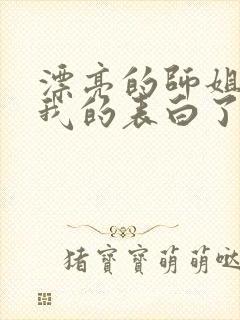 漂亮的师姐
我的表白了
猪寶寶萌萌哒